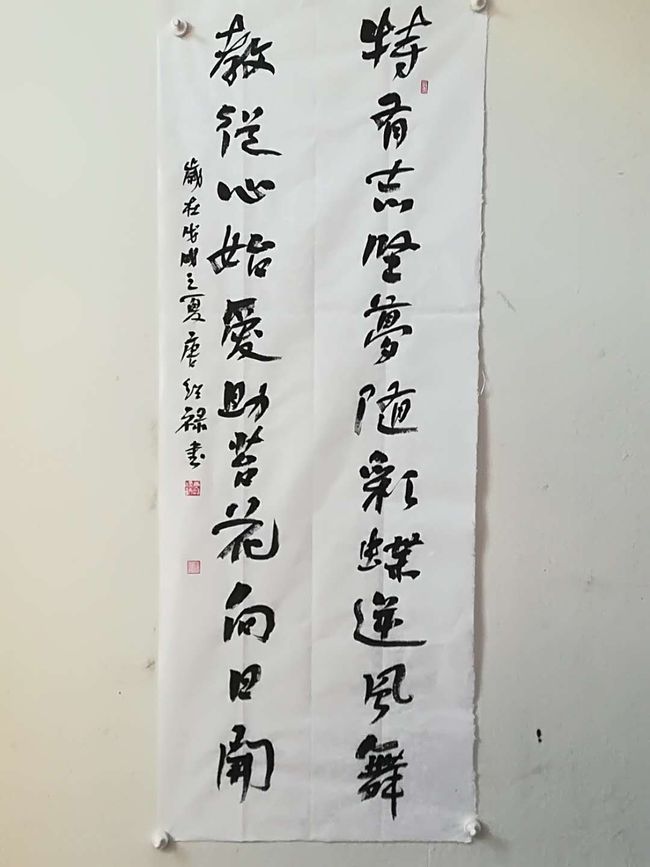 特有志堅夢随彩蝶逆風舞
教從心始愛助苔花向日開
歲在戊戌之夏唐禄書